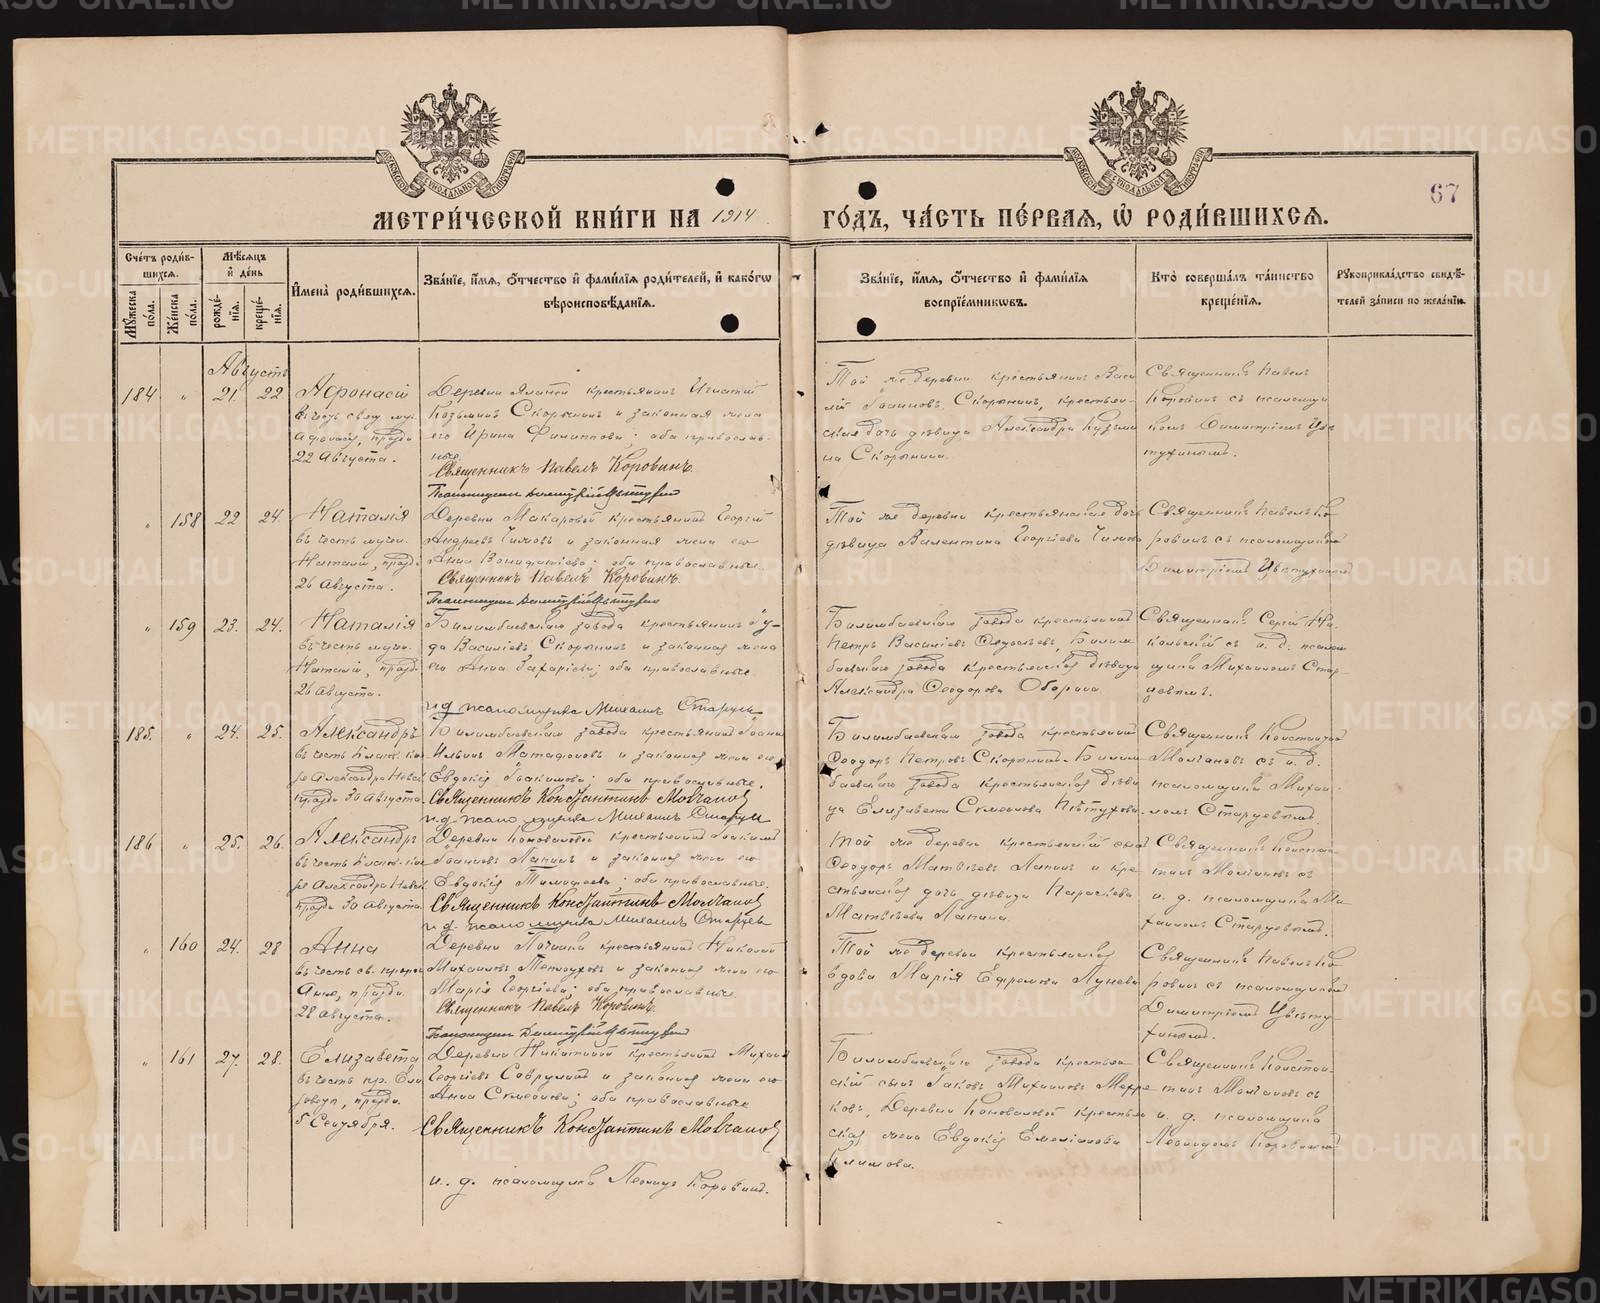 МЕТРИ́ЧЕСКОЙ КНИ́ГИ НА 1914
ГО́ДЪ, ЧА́СТЬ ПЕ́РВАЯ, Ѡ҆ РОДИ́ВШИХСЯ.
67
Сче́тъ роди́в-
шихся.
Мѣ́сяцъ
и҆ де́нь
Мꙋ́жеска по́ла.
Же́нска по́ла.
рожде́нїѧ.
креще́нїѧ.
И҆мена̀ роди́вшихсѧ.
Зва́нїе, и҆́мѧ, ѻ҆́тчество и҆ фами́лїѧ роди́телей, и҆ како́гѡ
вѣроисповѣ́данїѧ.
Зва́нїе, и҆́мѧ, ѻ҆́тчество и҆ фами́лїѧ
воспрїе́мникѡвъ.
Кто̀ соверша́лъ та́инство
креще́нїѧ.
Рꙋкоприкла́дство свидѣ́-
телей за́писи по жела́нїю.
Августъ
184 " 21 22 Афонасій
въ честь свящ. муч.
Афонасія, праздн.
22 Августа.
крестьянинъ Игнатій
Козьминъ Скорынинъ и законная жена
его Ирина Филиппова; оба православ-
ные.
Священникъ Павелъ Коровинъ.
Той же деревни крестьянинъ Васи
лій Іоанновъ Скорынинъ, крестьян-
ская дочь дѣвица Александра Кузьми
на Скорынина.
Священникъ Павелъ
Коровинъ съ псаломщи
комъ Димитріемъ Цвѣ
тухинымъ.
" 158 22 24 Наталія
въ честь муч.
Наталіи, праздн.
26 Августа.
Деревни Макаровой крестьянинъ Георгій
Андреевъ и законная жена его
Анна оба православные.
Священникъ Павелъ Коровинъ.
Той же деревни крестьянская дочь
дѣвица Валентина Георгіева
Священникъ Павелъ Ко
ровинъ съ псаломщикомъ
Димитріемъ Цвѣтухинымъ
" 159 23. 24. Наталія
въ честь муч.
Наталіи, праздн.
26 Августа.
Билимбаевскаго завода крестьянинъ Іу-
да Васильевъ Скорынинъ и законная жена
его Анна Захаріева; оба православные
и д псаломщика Михаилъ Старцевъ
Билимбаевскаго завода крестьянинъ
Петръ Васильевъ Билим
баевскаго завода крестьянская дѣвица
Александра Ѳеодорова Оборина.
Священникъ Сергій На
съ и. д. псалом
щика Михаиломъ Стар-
цевымъ.
185. " 24. 25. Александръ
въ честь благ. кня
зя Александра Невск
праздн 30 Августа.
Билимбаевскаго завода крестьянинъ Іоаннъ
Ильинъ и законная жена его
Евдокія Іоакимова; оба православные.
Священникъ Константинъ Молчановъ
и.д. псаломщика Михаилъ Старцевъ
Билимбаевскаго завода крестьянинъ
Ѳеодоръ Петровъ Скорынинъ. Билим
баевскаго завода крестьянская дѣви
ца Елизавета Симеонова Пѣтухова.
Священникъ Константинъ
Молчановъ съ и. д.
псаломщика Михаи
ломъ Старцевымъ.
186 " 25. 26. Александръ
въ честь благ. кня
зя Александра Невск
праздн 30 Августа.
Деревни Коноваловой крестьянинъ Іоакимъ
Іоанновъ Лапинъ и законная жена его
Евдокія Тимофеева; оба православные.
Священникъ Константинъ Молчановъ
и д. псаломщика Михаилъ Старцевъ
Той же деревни крестьянскій сынъ
Ѳеодоръ Матвѣевъ Лапинъ и кре
стьянская дочь дѣвица Параскева
Матвѣева Лапина.
Священникъ Констан
тинъ Молчановъ съ
и. д. псаломщика Ми
хаиломъ Старцевымъ.
" 160 24. 28 Анна
въ честь св. прор
Анны, праздн.
28 августа.
Деревни Починка крестьянинъ Николай
Михаиловъ Теплоуховъ и законная жена его
Марія Георгіева; оба православные.
Священникъ Павелъ Коровинъ.
Той же деревни крестьянская
вдова Марія Ефремова Лунева
Священникъ Павелъ Ко
ровинъ съ псаломщикомъ
Димитріемъ Цвѣту-
хинымъ.
" 161 27. 28. Елизавета
въ честь пр. Ели
заветы, праздн.
5 Сентября.
Деревни Никитиной крестьянинъ Михаилъ
Георгіевъ и законная жена его
Анна Симеонова; оба православные
Священникъ Константинъ Молчановъ
и. д. псаломщика Леонидъ Коровинъ.
Билимбаевскаго завода крестьян
скій сынъ Іаковъ Михаиловъ
Деревни Коноваловой крестьян
ская жена Евдокія Емеліанова
Климова.
Священникъ Констан-
тинъ Молчановъ съ
и. д. псаломщика
Леонидомъ Коровинымъ
METRIKI.GASO-URAL.RU